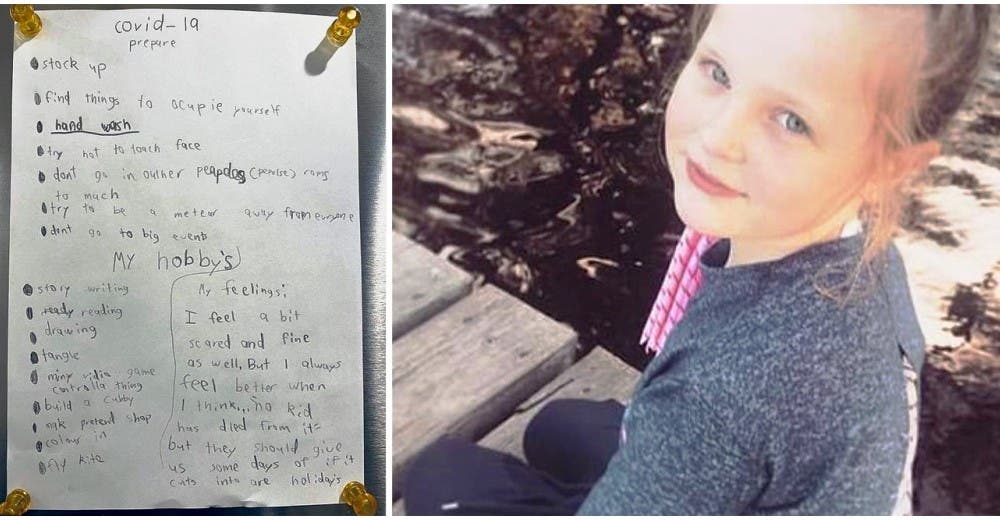 covid-19
prepare
stock up
find things to ocupie yourself
hand wash
try not to toach face
dont go in outher (peopolse) roms
to mach
try to be a meteor away from everyone
dont go to big events
MY hobby's
story writing
reading
drawing
tangle
miny vidio game
controlla thing
build a cubby
mak pretend shop
colour in
fly kite
My feelings:
I feel a bit
scared and fine
as well, But I always
feel better when
I think... no kid
has died from it=
but they should give
us some days of if it
cuts into are holiday's